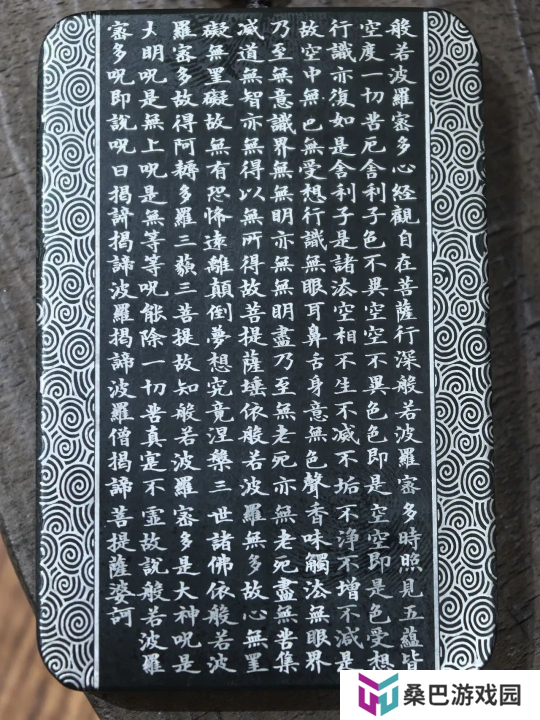 般若波羅蜜多心経觀自在菩薩行深般若波羅蜜多時照見五蘊皆
空度一切苦厄舍利子色不異空空不異色色即是空空即是色受想
行識亦復如是舍利子是諸法空相不生不滅不垢不淨不增不減是
故空中無色無受想行識無眼耳鼻舌身意無色聲香味觸法無眼界
乃至無意識界無無明亦無無明盡乃至無老死亦無老死盡無苦集
滅道無智亦無得以無所得故菩提薩埵依般若波羅無多故心無罣
礙無罣礙故無有恐怖遠離顛倒夢想究竟涅槃三世諸佛依般若波
羅蜜多故得阿耨多羅三藐三菩提故知般若波羅蜜多是大神呪是
大明呪是無上呪是無等等呪能除一切苦真寔不虛故說般若波羅
蜜多呪即說呪曰揭諦揭諦波羅揭諦波羅僧揭諦菩提薩婆訶
桑巴游戏园